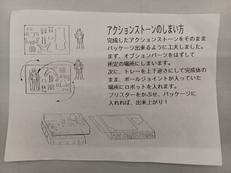 アクションストーンのしまい方
完成したアクションストーンをそのまま
パッケージ出来るように工夫しました。
まず、オプションパーツをはずして
所定の場所にしまいます。
次に、トレーを上下逆さにして完成体の
まま、ボールジョイントが入っていた
場所にロボットを入れます。
ブリスターをかぶせ、パッケージに
入れれば、出来上がり！